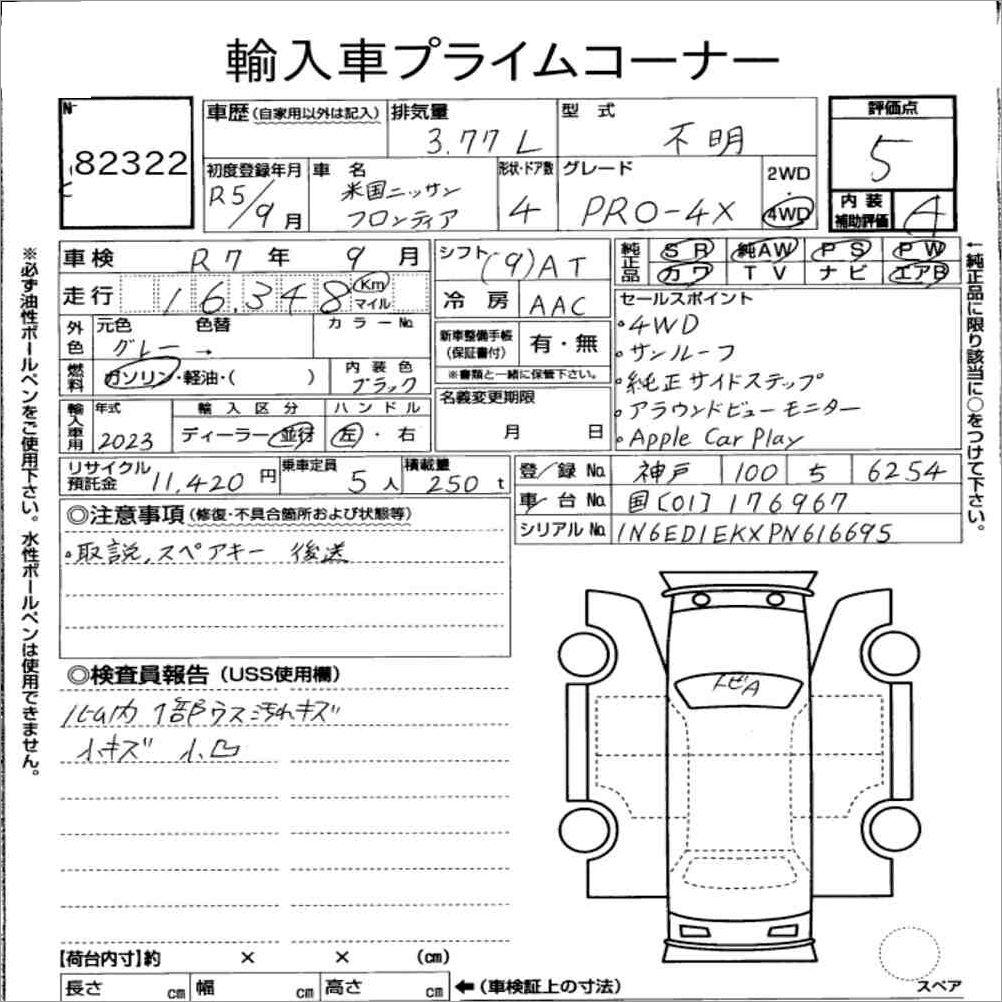 輸入車プライムコーナー
№
82322
車歴(自家用以外は記入)
排気量
3.77 L
型 式
不明
評価点
5
初度登録年月
R5/9月
車 名
米国ニッサン
フロンティア
形状・ドア数
4
グレード
PRO-4X
2WD
・
4WD
内 装
補助評価
A
車検 R7年 9月
シフト (9)AT
純正品
SR 純AW PS PW
カワ TV ナビ エアB
走行 16,348 Km
マイル
冷房 AAC
外色
元色 色替
グレー →
カラー№
新車整備手帳
(保証書付)
有・無
※書類と一緒に保管下さい。
燃料
ガソリン・軽油・( )
内装色
ブラック
名義変更期限
月 日
輸入車用
年式
2023
輸入区分
ディーラー・並行
ハンドル
左・右
セールスポイント
・4WD
・サンルーフ
・純正サイドステップ
・アラウンドビューモニター
・Apple Car Play
リサイクル
預託金
11,420 円
乗車定員
5人
積載量
250 t
登/録 № 神戸 100 ち 6254
車/台 № 国[01]176967
シリアル № 1N6ED1EKXPN616695
◎注意事項(修復・不具合箇所および状態等)
・取説、スペアキー 後送
◎検査員報告(USS使用欄)
1部ウス汚れキズ
小キズ 小凹
トビA
【荷台内寸】約 × × (㎝)
長さ ㎝ 幅 ㎝ 高さ ㎝ ←(車検証上の寸法)
スペア
※必ず油性ボールペンをご使用下さい。水性ボールペンは使用できません。
←純正品に限り該当に○をつけて下さい。